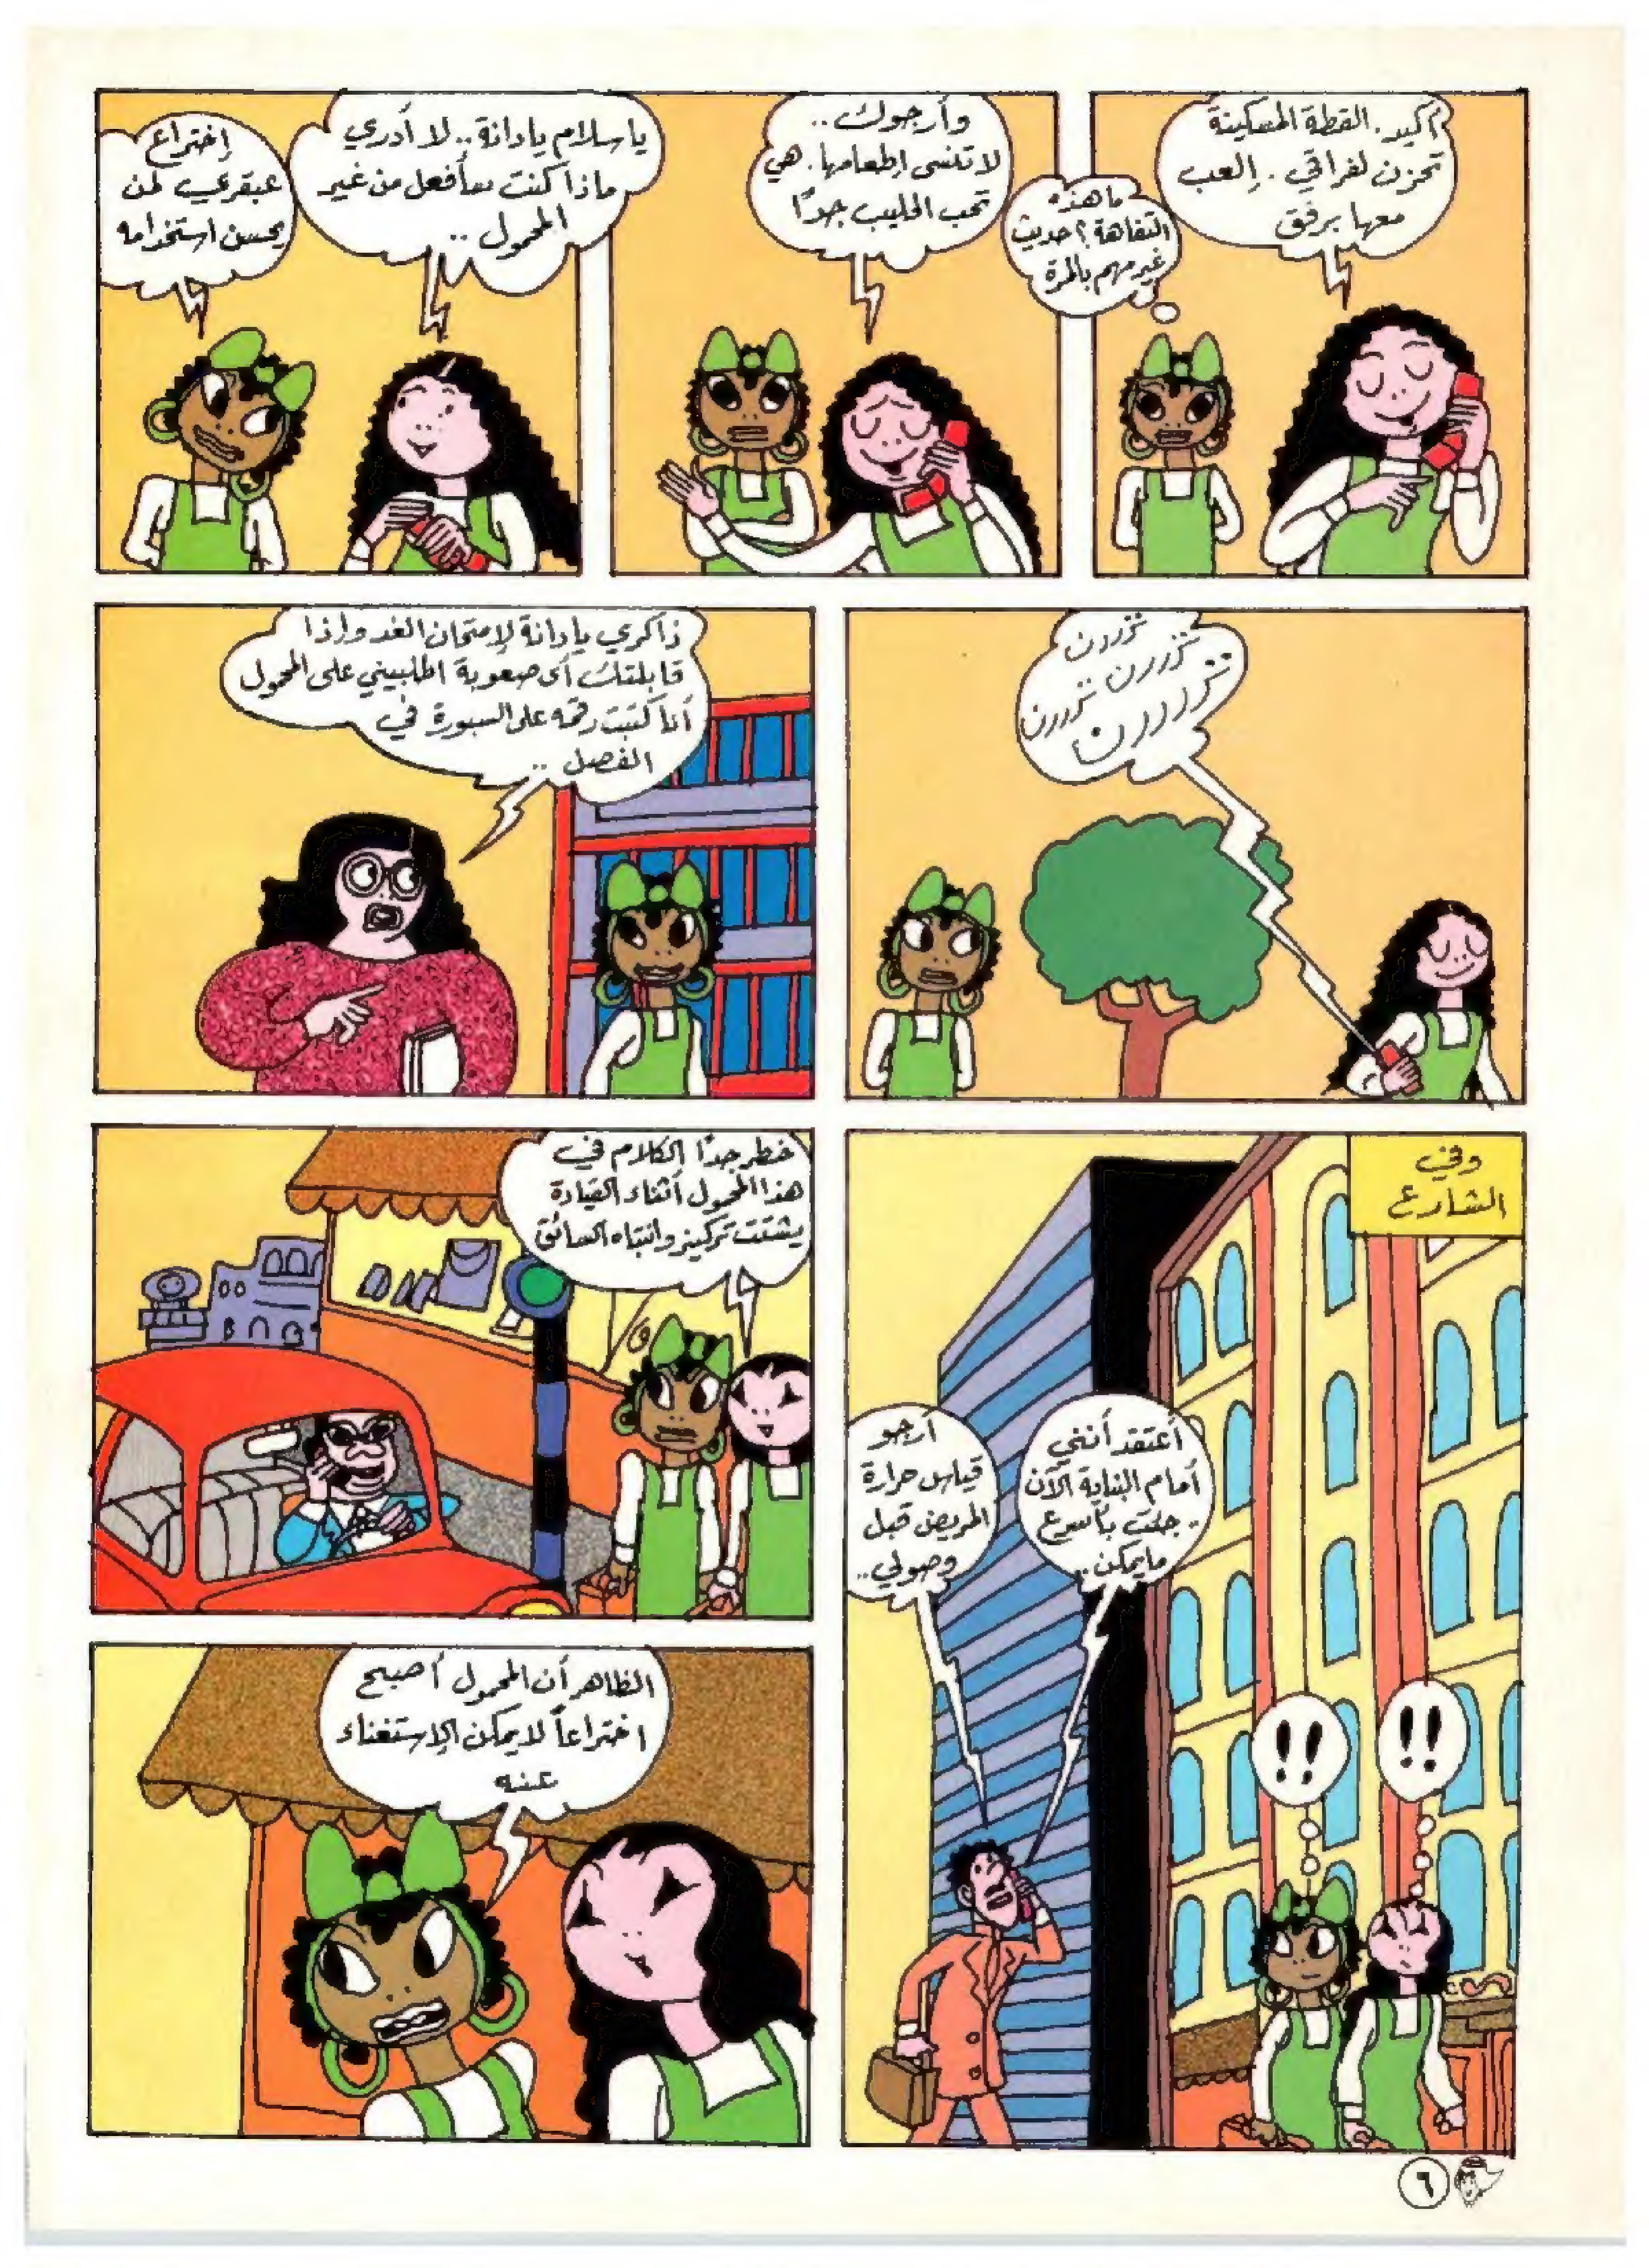 أكيد. القطة المسكينة
تحزن لفراقي. إلعب
معها برفق
ما هذه
التفاهة؟ حديث
غير مهم بالمرة
وأرجوك..
لا تنسى إطعامها. هي
تحب الحليب جدًا
يا سلام يا دانة.. لا أدري
ماذا كنت سأفعل من غير
المحمول..
إختراع
عبقري لمن
يحسن استخدامه
تررررن
تررررن تررررن
تررررررن
ذاكري يا دانة لإمتحان الغد وإذا
قابلتك أى صعوبة اطلبيني على المحمول
أنا كتبت رقمه على السبورة في
الفصل..
وفي
الشارع
أعتقد أنني
أمام البناية الآن
.. جئت بأسرع
ما يمكن.
أرجو
قياس حرارة
المريض قبل
وصولي..
!!
!!
خطر جدًا الكلام في
هذا المحمول أثناء القيادة
يشتت تركيز وانتباه السائق
الظاهر أن المحمول أصبح
اختراعاً لا يمكن الإستغناء
عنه
٦